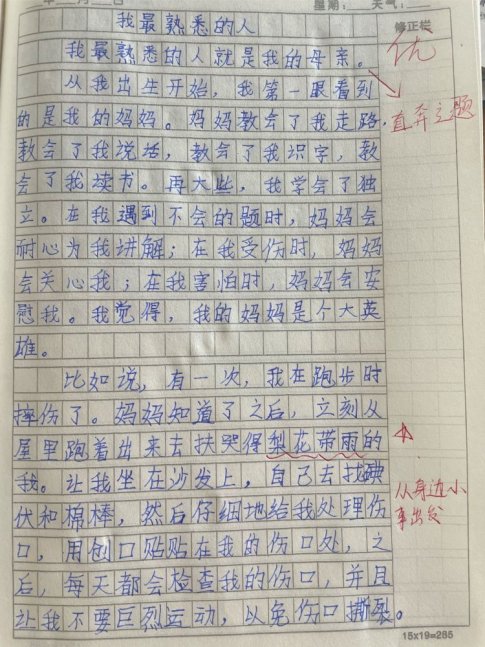 年 月 日 星期: 天气:
我最熟悉的人
修正栏
我最熟悉的人就是我的母亲。
优
从我出生开始，我第一眼看到
的是我的妈妈。妈妈教会了我走路，
直奔主题
教会了我说话，教会了我识字，教
会了我读书。再大些，我学会了独
立。在我遇到不会的题时，妈妈会
耐心为我讲解；在我受伤时，妈妈
会关心我；在我害怕时，妈妈会安
慰我。我觉得，我的妈妈是个大英
雄。
比如说，有一次，我在跑步时
摔伤了。妈妈知道了之后，立刻从
屋里跑着出来去扶哭得梨花带雨的
我。让我坐在沙发上，自己去找碘
伏和棉棒，然后仔细地给我处理伤
从身边小
事出发
口，用创口贴贴在我的伤口处，之
后，每天都会检查我的伤口，并且
让我不要巨烈运动，以免伤口撕裂。
15x19=285